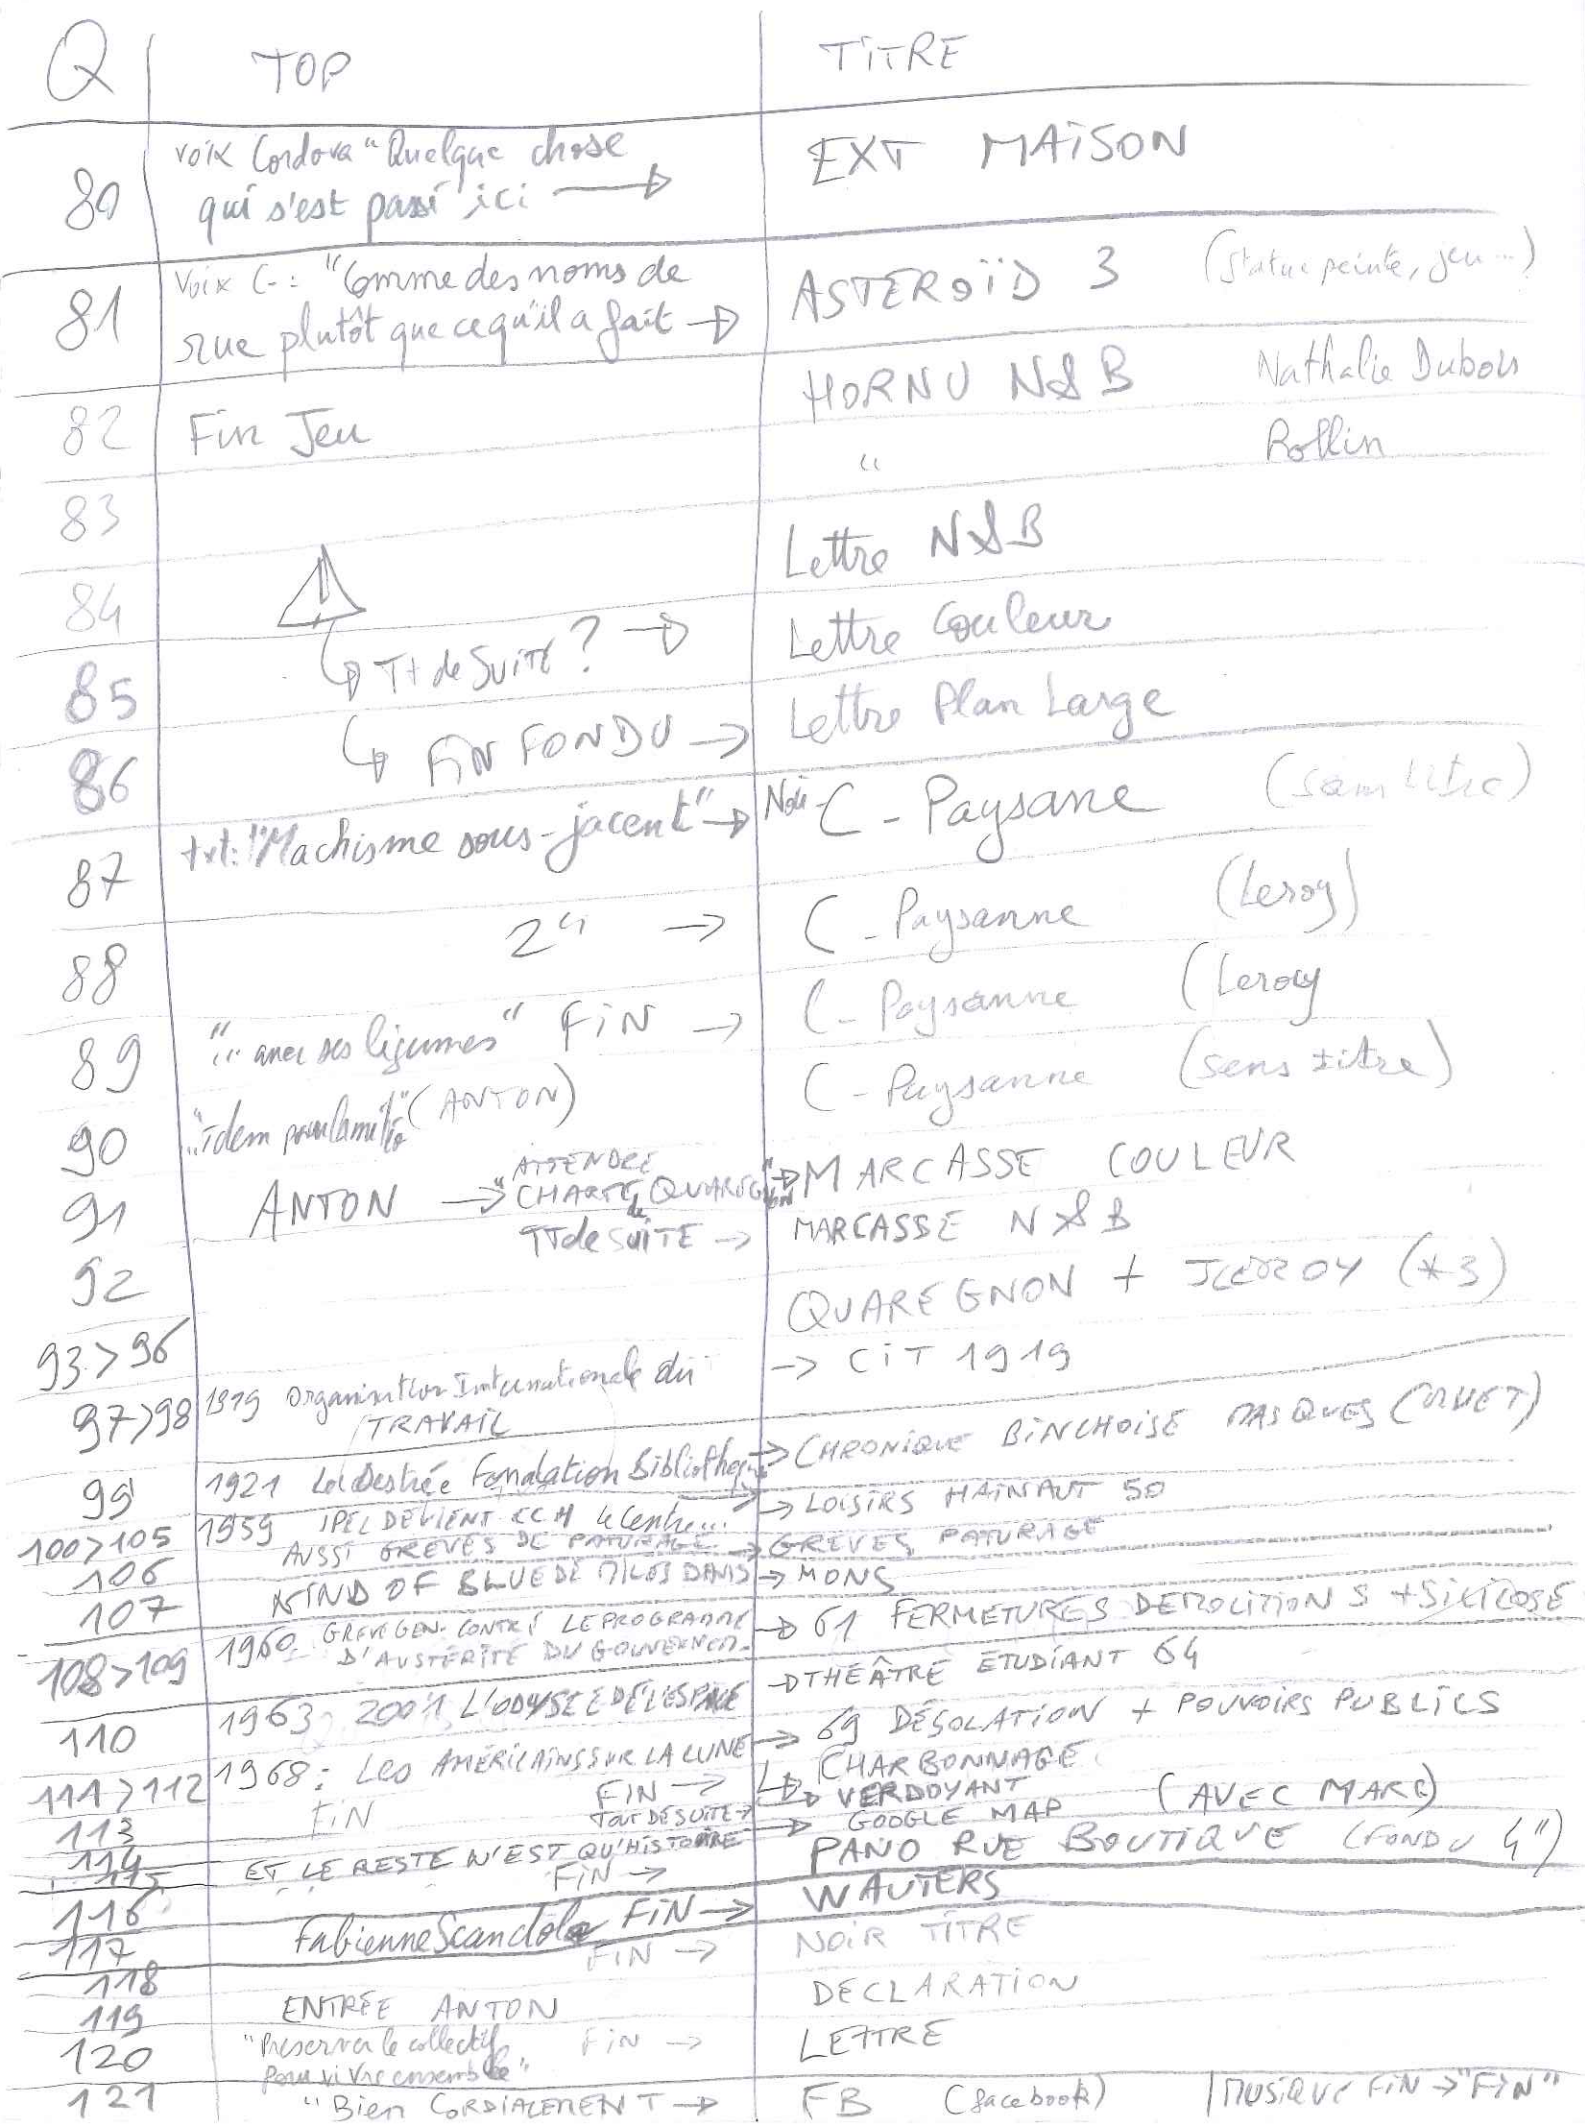 Q TOP TITRE
80 voix Cordova "Quelque chose qui s'est passé ici → EXT MAISON
81 Voix C-: "Comme des noms de rue plutôt que ce qu'il a fait → ASTEROÏD 3 (Statue peinte, jeu...)
82 Fin Jeu HORNU N&B Nathalie Dubois
83 " Rollin
84 Lettre N&B
85 Tt de SUITE? → Lettre Couleur
86 FIN FONDU → Lettre Plan Large
87 txt: "Machisme sous-jacent" → Noir C - Paysane (sans titre)
88 2" → C - Paysanne (Leroy)
89 "... avec ses légumes" FIN → C - Paysanne (Leroy
90 (ANTON) C - Paysanne (sans titre)
91 ANTON → "ATTENDRE CHARTE de QUAREGNON" → MARCASSE COULEUR
92 TT de SUITE → MARCASSE N&B
93>96 QUAREGNON + (*3)
97>98 1919 Organisation Internationale du TRAVAIL → CIT 1919
99 1921 Loi Destrée Fondation Bibliothèque → CHRONIQUE BINCHOISE MASQUES
100>105 1959 DEVIENT CCH le Centre... → LOISIRS HAINAUT 50
106 AUSSI GRÈVES DE PATURAGE → GREVES PATURAGE
107 KIND OF BLUE DE MILES DAVIS → MONS
108>109 1960 GREVE GEN. CONTRE LE PROGRAMME D'AUSTÉRITÉ DU GOUVERNEM. → 61 FERMETURES DEMOLITIONS + SILICOSE
110 1963: 2001 L'ODYSEE DE L'ESPACE → THÉÂTRE ETUDIANT 64
111>112 1968: Les AMÉRICAINS SUR LA LUNE → 69 DÉSOLATION + POUVOIRS PUBLICS
113 FIN FIN → CHARBONNAGE VERDOYANT
114 TOUT DE SUITE → GOOGLE MAP (AVEC MARC)
115 ET LE RESTE N'EST QU'HISTOIRE → PANO RUE BOUTIQUE (FONDU 4")
116 FIN → WAUTERS
117 Fabienne Scandola FIN → NOIR TITRE
118 FIN → DECLARATION
119 ENTRÉE ANTON
120 "Préserver le collectif pour vivre ensemble" FIN → LETTRE
121 "Bien CORDIALEMENT → FB (facebook) | MUSIQUE FIN → "FIN"